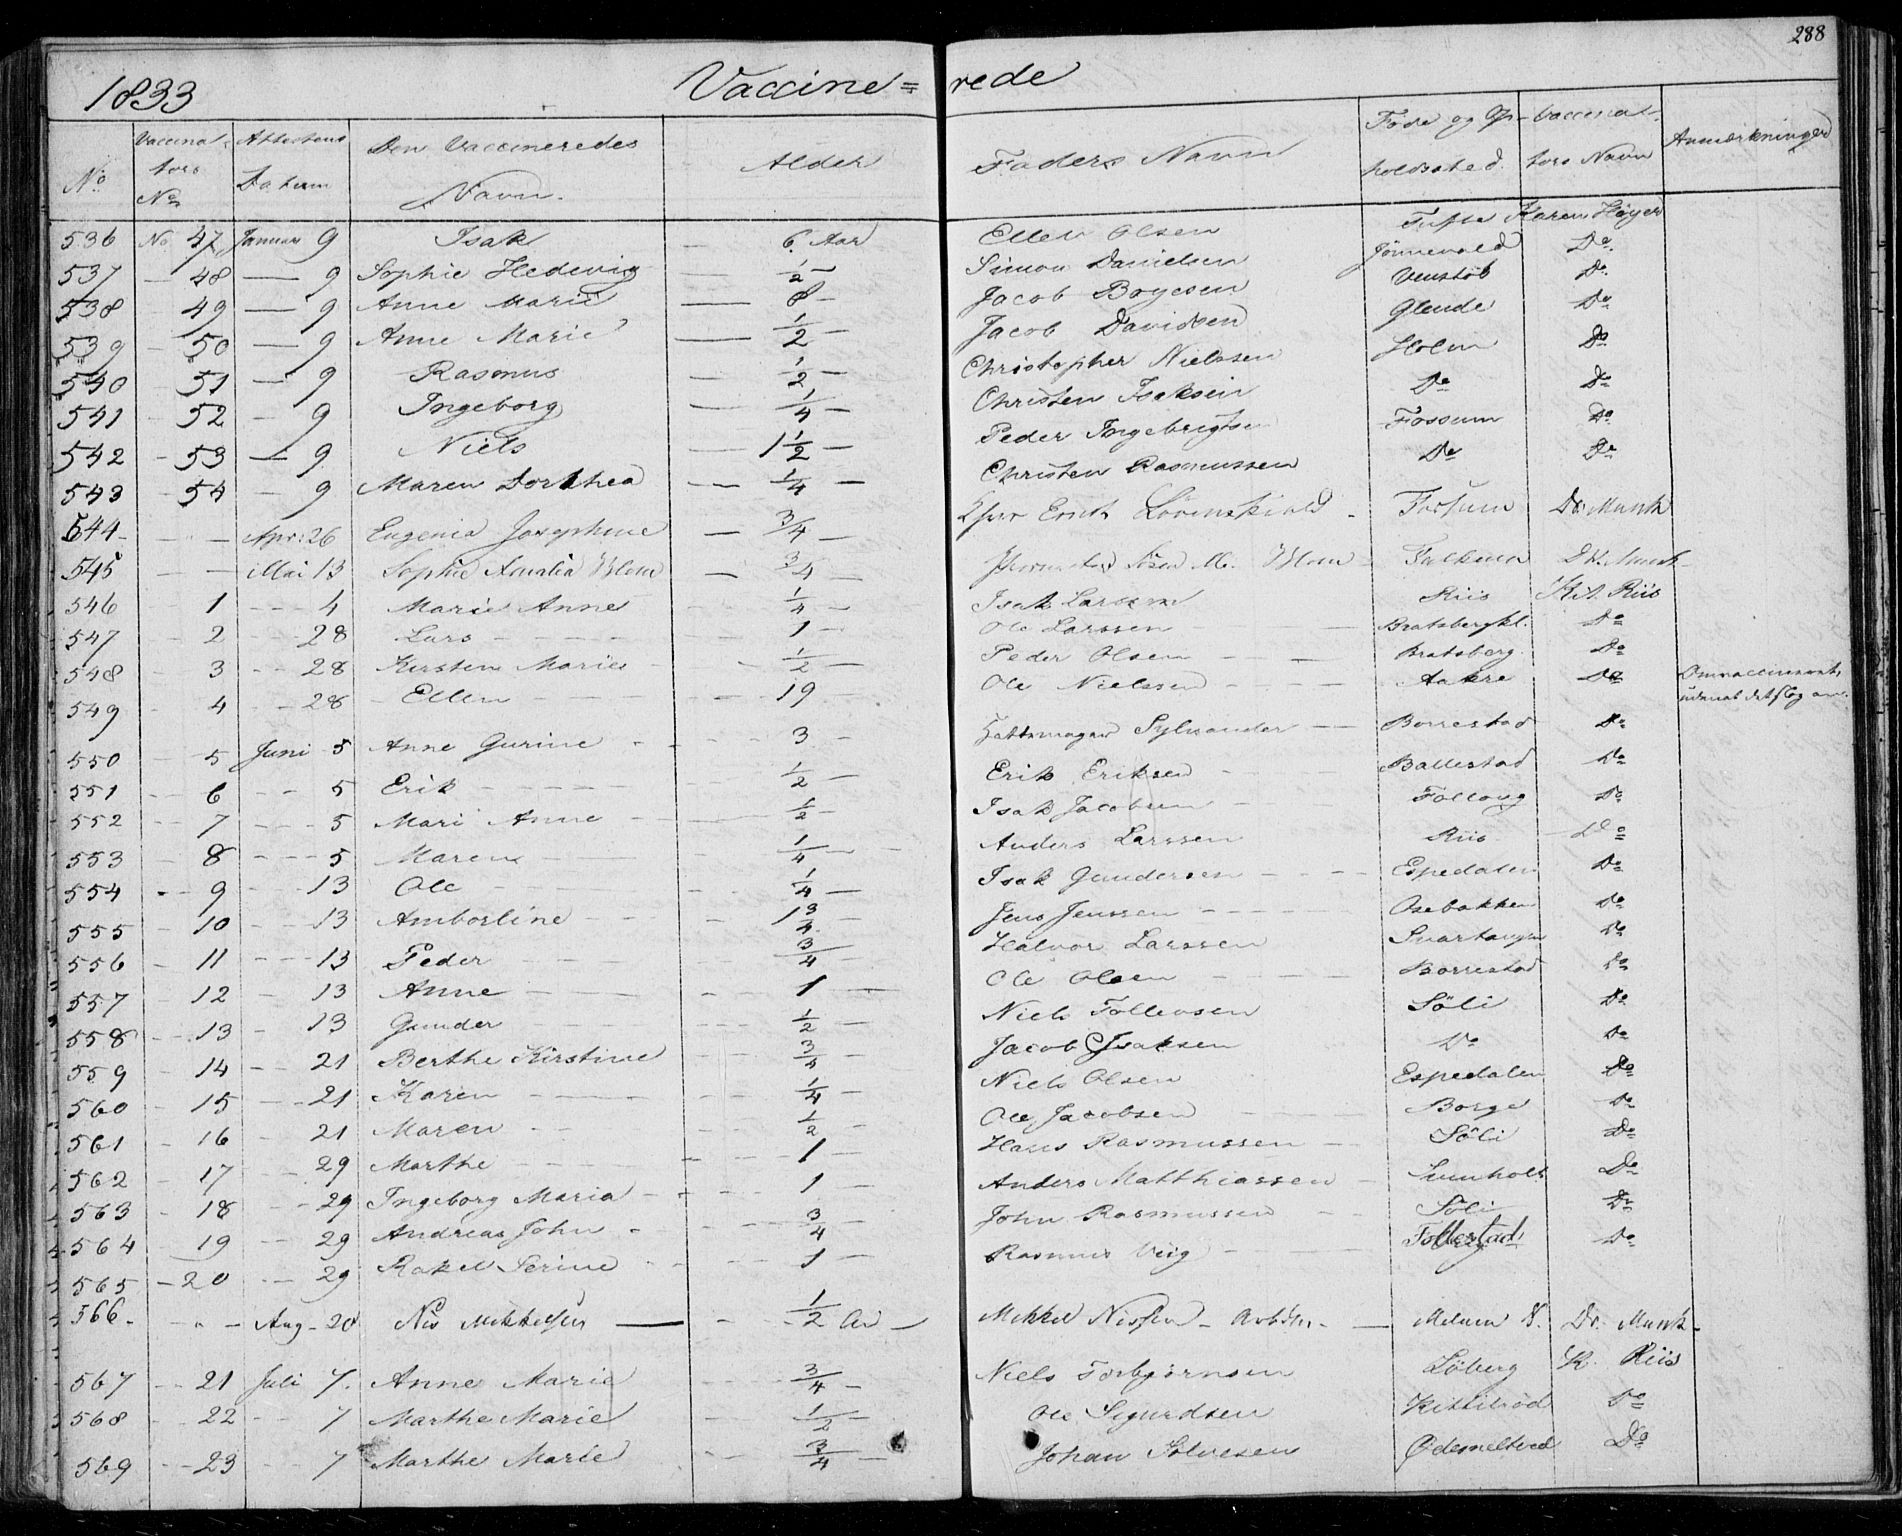 288
1833 Vaccine= rede
No Vaccinat- tors No Attestens Datum Den Vaccineredes Navn. Alder Faders Navn Føde og Op- holdssted. Vaccinat- tors Navn Anmærkninger
536 No 47 Januar 9 Isak — 6 Aar Ellev Olsen Tufte Karen Høyer
537 — 48 — 9 Sophie Hedevig — 1/2 — Simon Danielsen Jønnevald Do
538 — 49 — 9 Anne Marie — 8 — Jacob Boyesen Venstøb Do
539 — 50 — 9 Anne Marie — 1/2 — Jacob Davidsen Glende Do
540 — 51 — 9 Rasmus — 1/2 — Christopher Nielssen Holm Do
541 — 52 — 9 Ingeborg — 1/4 — Christen Isaksen Do Do
542 — 53 — 9 Niels — 1 1/2 — Peder Ingebrigtsen Fossum Do
543 — 54 — 9 Maren Dorthea — 1/4 — Christen Rasmussen Do Do
544 — — Apr: 26 Eugenia Josephine — 3/4 — Løvenskiold Fossum Dr. Munk
545 — — Mai 13 Sophie Amalia Blom — 3/4 — Blom Falkum Dr. Munk
546 1 — 4 Marie Anne 1/4 — Isak Larssen Riis Kit. Riis
547 — 2 — 28 Lars — 1 — Ole Larssen — Bratsbergkl. Do
548 — 3 — 28 Kirsten Marie — 1/2 — Peder Olsen — Bratsberg Do
549 4 — 28 Ellen — 19 Ole Nielssen — Aakre Do Omvaccineret, uden at det slog an.
550 — 5 Juni 5 Anne Gurine — 3 — Hattemager Sylvander — Borrestad Do
551 — 6 — 5 Erik — 1/2 — Erik Eriksen — Ballestad Do
552 — 7 — 5 Mari Anne — 1/2 — Isak Jacobsen — Follaug Do
553 — 8 — 5 Maren — 1/4 — Anders Larssen Riis Do
554 — 9 — 13 Ole — 1/4 — Isak Gundersen — Espedalen Do
555 — 10 — 13 Amborline — 1 3/4 — Jens Jenssen — Osebakken Do
556 — 11 — 13 Peder — 3/4 — Halvor Larssen Svartangen Do
557 — 12 — 13 Anne — 1 — Ole Olsen — Borrestad Do
558 — 13 — 13 Gunder — 1/2 — Niels Tollevsen Söli Do
559 — 14 — 21 Berthe Kirstine 3/4 — Jacob Isaksen Do Do
560 — 15 — 21 Karen — 1/4 — Niels Olsen Espedalen Do
561 — 16 — 21 Maren — 1/2 — Ole Jacobsen — Borge Do
562 — 17 — 29 Marthe — 1 — Hans Rasmussen — Söli Do
563 — 18 — 29 Ingeborg Maria — 1 — Anders Matthiassen — Svenholt Do
564 — 19 — 29 Andreas John — 3/4 — John Rasmussen — Söli Do
565 — 20 — 29 Rakel Serine — 1 — Rasmus Viig — Follestad Do
566 — " — Aug — 20 Nis Mikkelsen — 1/2 Ar — Mikkel Nissen — Arbdsm. — Melum S. Dr. Munk
567 — 21 Juli 7. Anne Marie — 3/4 — Niels Torbjørnsen Löberg K. Riis
568 — 22 — 7 Marthe Marie — 1/2 — Ole Sigurdsen Kittilrød Do
569 — 23 — 7 Marthe Marie — 3/4 — Johan Tolvesen Do